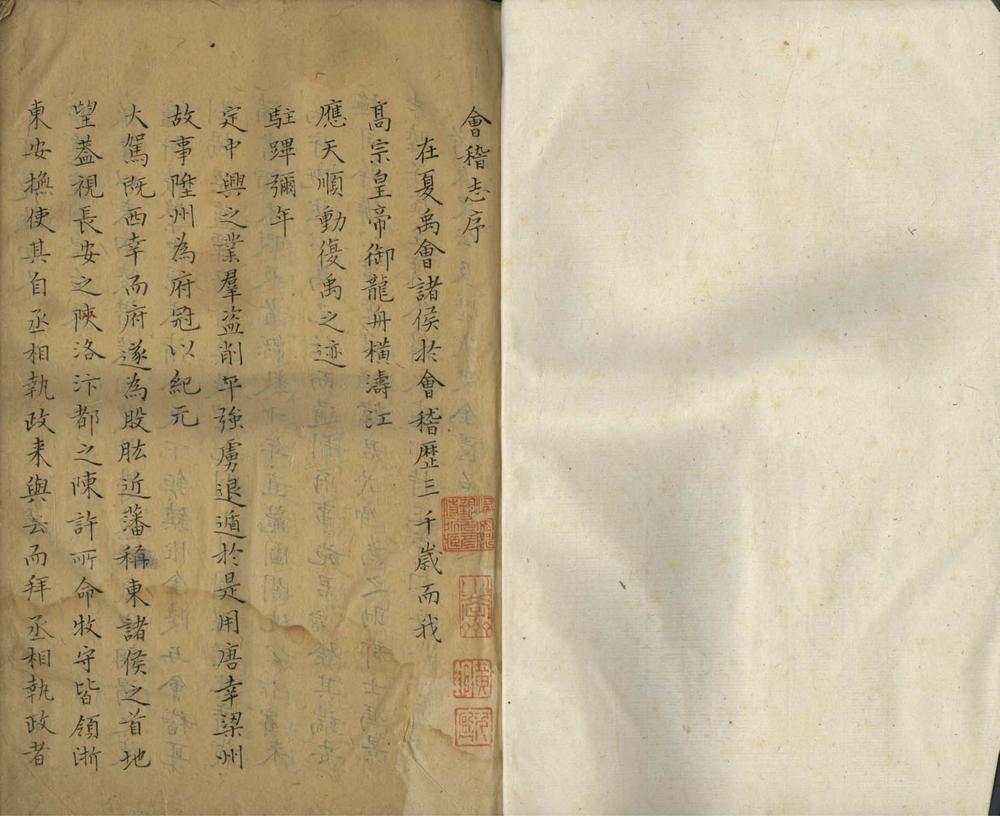 會稽志序
在夏禹會諸侯於會稽歷三千歲而我
高宗皇帝御龍舟橫濤江
應天順動復禹之迹
駐蹕彌年
定中興之業羣盜削平強虜退遁於是用唐幸梁州
故事陞州為府冠以紀元
大駕既西幸而府遂為股肱近藩稱東諸侯之首地
望蓋視長安之陝洛汴都之陳許所命牧守皆領浙
東安撫使其自丞相執政来與去而拜丞相執政者